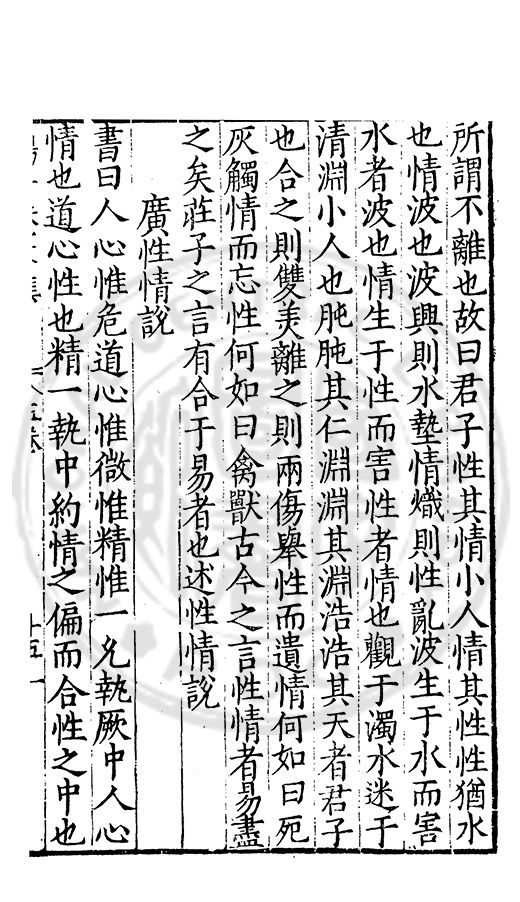 所謂不離也故曰君子性其情小人情其性性猶水
也情波也波興則水墊情熾則性亂波生于水而害
水者波也情生于性而害性者情也觀于濁水迷于
清淵小人也肫肫其仁淵淵其淵浩浩其天者君子
也合之則雙美離之則兩傷舉性而遺情何如曰死
灰觸情而忘性何如曰禽獸古今之言性情者易盡
之矣莊子之言有合于易者也述性情說
廣性情說
書曰人心惟危道心惟微惟精惟一允執厥中人心
情也道心性也精一執中約情之偏而合性之中也